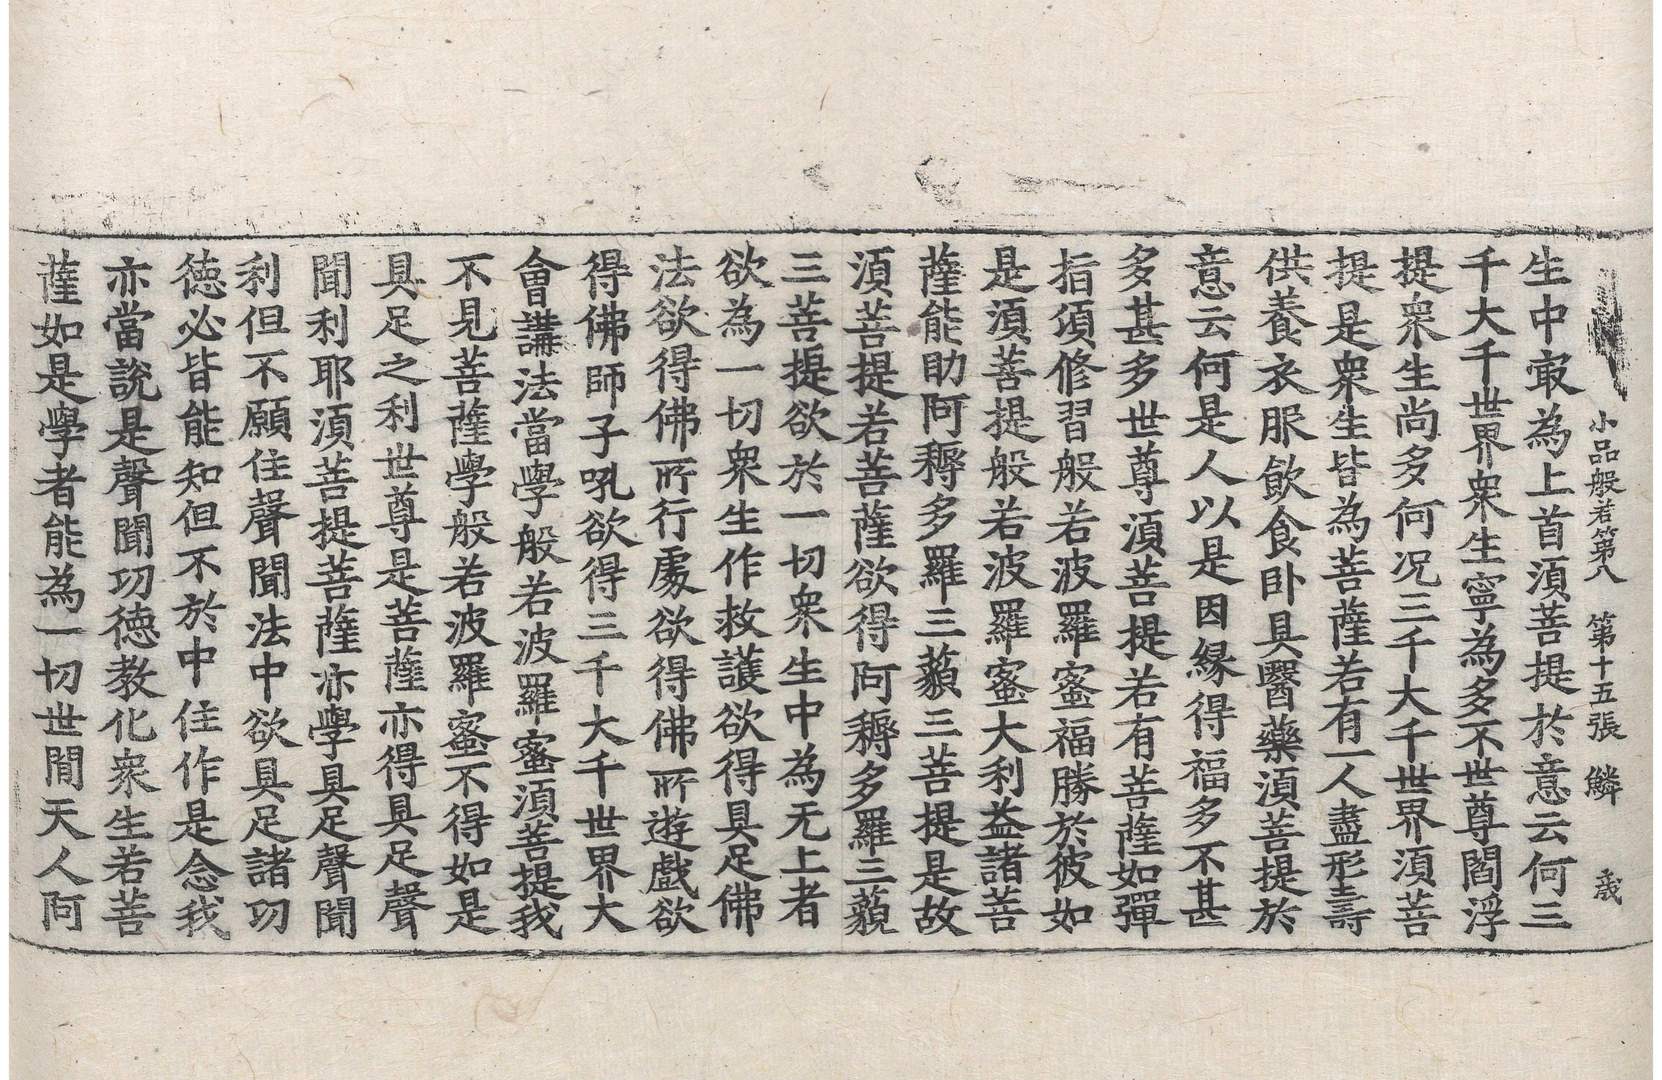 小品般若第八　第十五張　鱗
生中㝡為上首湏菩提於意云何三
千大千世界衆生寧為多不世尊閻浮
提衆生尚多何况三千大千世界湏菩
提是衆生皆為菩薩若有一人盡形壽
供養衣服飲食卧具醫藥湏菩提於
意云何是人以是因緣得福多不甚
多甚多世尊湏菩提若有菩薩如彈
指頃修習般若波羅蜜福勝於彼如
是湏菩提般若波羅蜜大利益諸菩
薩能助阿耨多羅三藐三菩提是故
湏菩提若菩薩欲得阿耨多羅三藐
三菩提欲於一切衆生中為无上者
欲為一切衆生作救護欲得具足佛
法欲得佛所行處欲得佛所遊戲欲
得佛師子吼欲得三千大千世界大
會講法當學般若波羅蜜湏菩提我
不見菩薩學般若波羅蜜不得如是
具足之利世尊是菩薩亦得具足聲
聞利耶湏菩提菩薩亦學具足聲聞
利但不願住聲聞法中欲具足諸功
德必皆能知但不於中住作是念我
亦當說是聲聞功德教化衆生若菩
薩如是學者能為一切世間天人阿